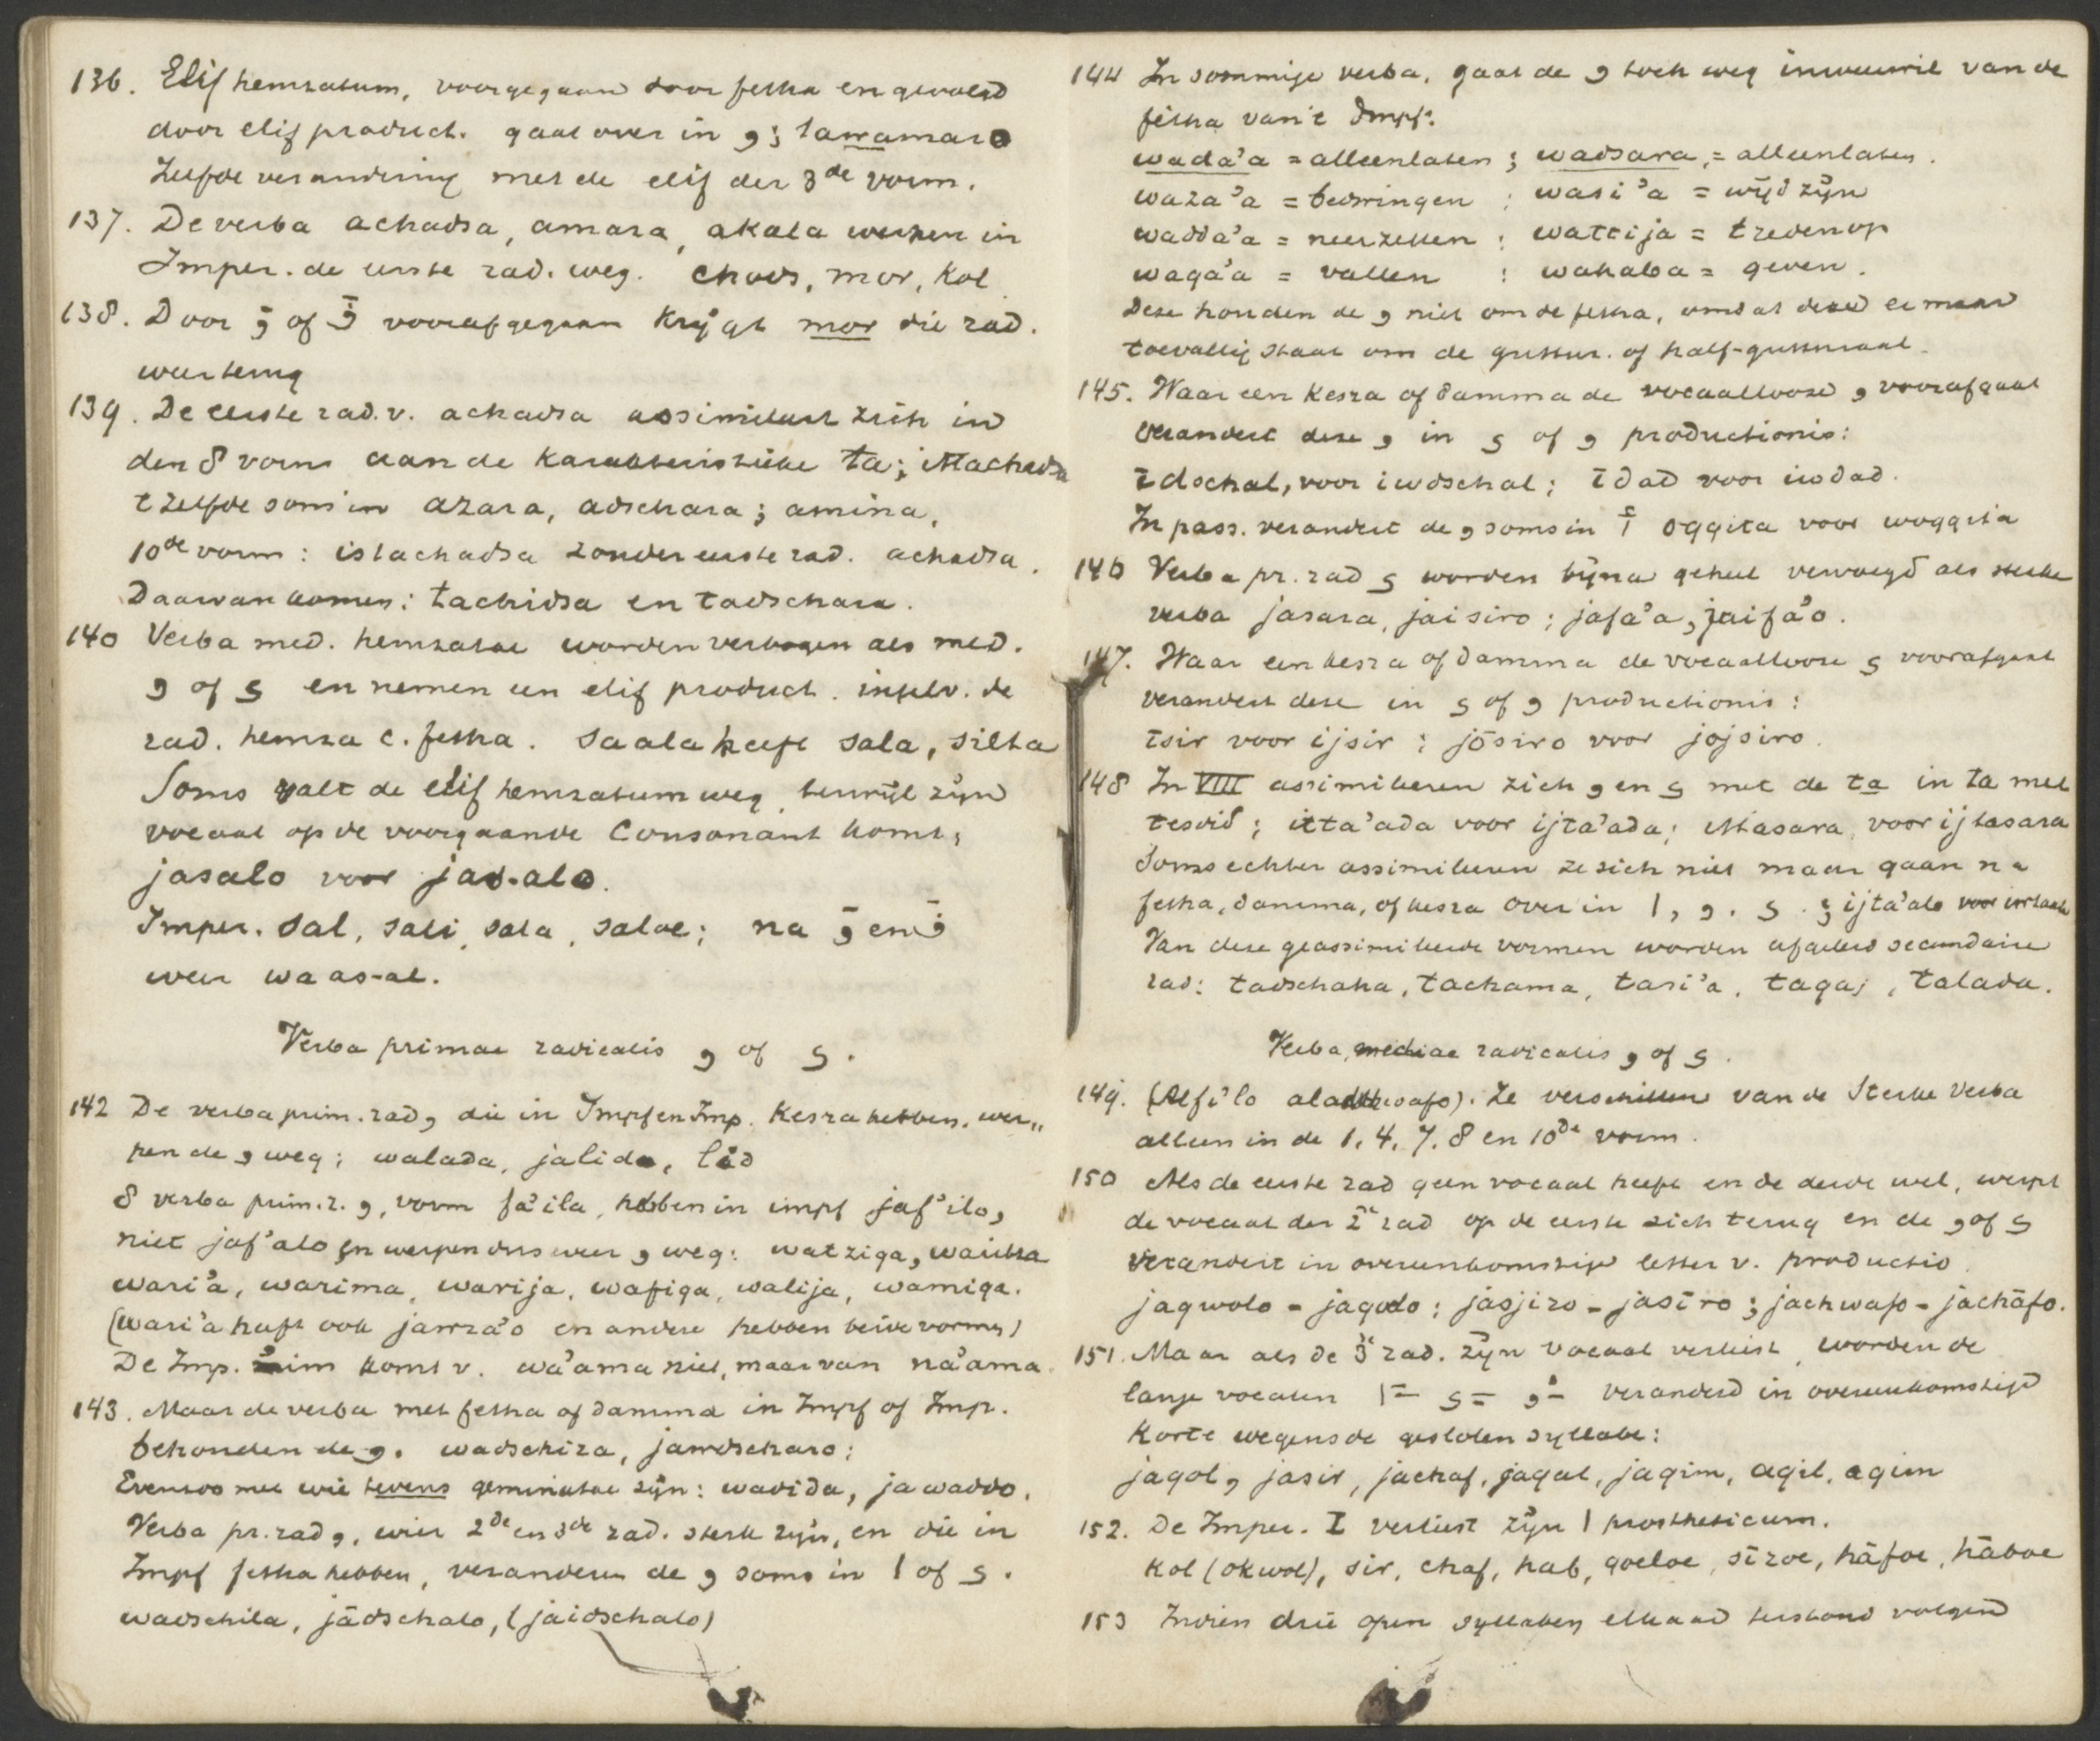 136. Elif hemzatum, voorgegaan door fetha en gevolgd
door elif product. gaat over in و; tawamaro
Zelfde verandering met de elif der 3de vorm.
137. De verba achadsa, amara, akala werpen in
Imper. de eerste rad. weg. chods, mor, kol
138. Door وَ of فَ voorafgegaan krijgt mor die rad.
weer terug
139. De eerste rad. v. achadsa assimileert zich in
den 8 vorm aan de karakteristieke ta; ittachadsa
t zelfde soms in azara, adschara; amina,
10de vorm: istachadsa zonder eerste rad. achadsa.
Daarvan komen: tachidsa en tadschara.
140 Verba med. hemzatae worden verbogen als med.
و of ى en nemen een elif product. in plv. de
rad. hemza c. fetha. saala heeft sala, silta
Soms valt de elif hemzatum weg, terwijl zijn
vocaal op de voorgaande Consonant komt;
jasalo voor jas-alo.
Imper. sal, sali, sala, saloe; na وَ en فَ
weer waas-al.
Verba primae radicalis و of ى.
142 De verba prim. rad و die in Impf en Imp. Kesra hebben, wer„
pen de و weg; walada, jalido, lid
8 verba prim. r. و, vorm fa'ila, hebben in impf jaf'ilo,
niet jaf'alo en werpen dus weer و weg: watziga,
wari'a, warima, warija, wafiga, walija, wamiga.
(wari'a heeft ook jawra'o en andere hebben beide vormen)
De Imp. 'im komt v. wa'ama niet, maar van na'ama.
143. Maar de verba met fetha of damma in Impf of Imp.
behouden de و. wadschiza, jawdscharo;
Evenzoo met wie tevens geminatae zijn: wadida, jawaddo.
Verba pr. rad و, wier 2de en 3de rad. sterk zijn, en die in
Impf fetha hebben, veranderen de و soms in ا of ى.
wadschila, jādschalo, (jaidschalo)
144 In sommige verba, gaat de و toch weg in weerwil van de
fetha van 't Impf:
wada'a = alleenlaten; wadsara, = alleenlaten.
waza'a = bedwingen; wasi'a = wijd zijn
wadda'a = neerzetten; wattija = treden op
waga'a = vallen; wahaba = geven.
Deze houden de و niet om de fetha, omdat deze er maar
toevallig staat om de guttur. of half-gutturaal.
145. Waar een kesra of damma de vocaallooze و voorafgaat
verandert deze و in ى of و productionis:
īdschal, voor iwdschal; īdad voor iwdad.
In pass. verandert de و soms in أ oggita voor woggita
146 Verba pr. rad ى worden bijna geheel vervoegd als sterke
verba jasara, jaisiro; jafa'a, jaifa'o.
147. Waar een kesra of damma de vocaallooze ى voorafgaat
verandert deze in ى of و productionis:
īsir voor ijsir; jōsiro voor jojsiro.
148 In VIII assimileeren zich و en ى met de ta in ta met
tesdid; itta'ada voor ijta'ada; ittasara voor ijtasara
Soms echter assimileeren ze zich niet maar gaan na
fetha, damma, of kesra over in ا, و. ى; ijta'alo voor
Van deze geassimileerde vormen worden afgeleid secundaire
rad: tadschaha, tachama, tasi'a, tagaj, talada.
Verba, mediae radicalis و of ى.
149. (Alf'ilo). Ze verschillen van de Sterke Verba
alleen in de 1, 4, 7, 8 en 10de vorm.
150 Als de eerste rad geen vocaal heeft en de derde wel, werpt
de vocaal der 2e rad op de eerste zich terug en de و of ى
verandert in overeenkomstige letter v. productio.
jagwolo - jagolo; jasjiro - jasīro; jachwafo - jachāfo.
151. Maar als de 3e rad. zijn vocaal verliest, worden de
lange vocalen اَ ىِ وُ veranderd in overeenkomstige
korte wegens de gesloten syllabe:
jagol, jasir, jachaf, jagal, jagim, agil, agim
152. De Imper. I verliest zijn ا prostheticum.
Kol (okwol), sir, chaf, hab, goeloe, sīroe, hāfoe, hāboe
153 Indien drie open syllaben elkaar terstond volgen